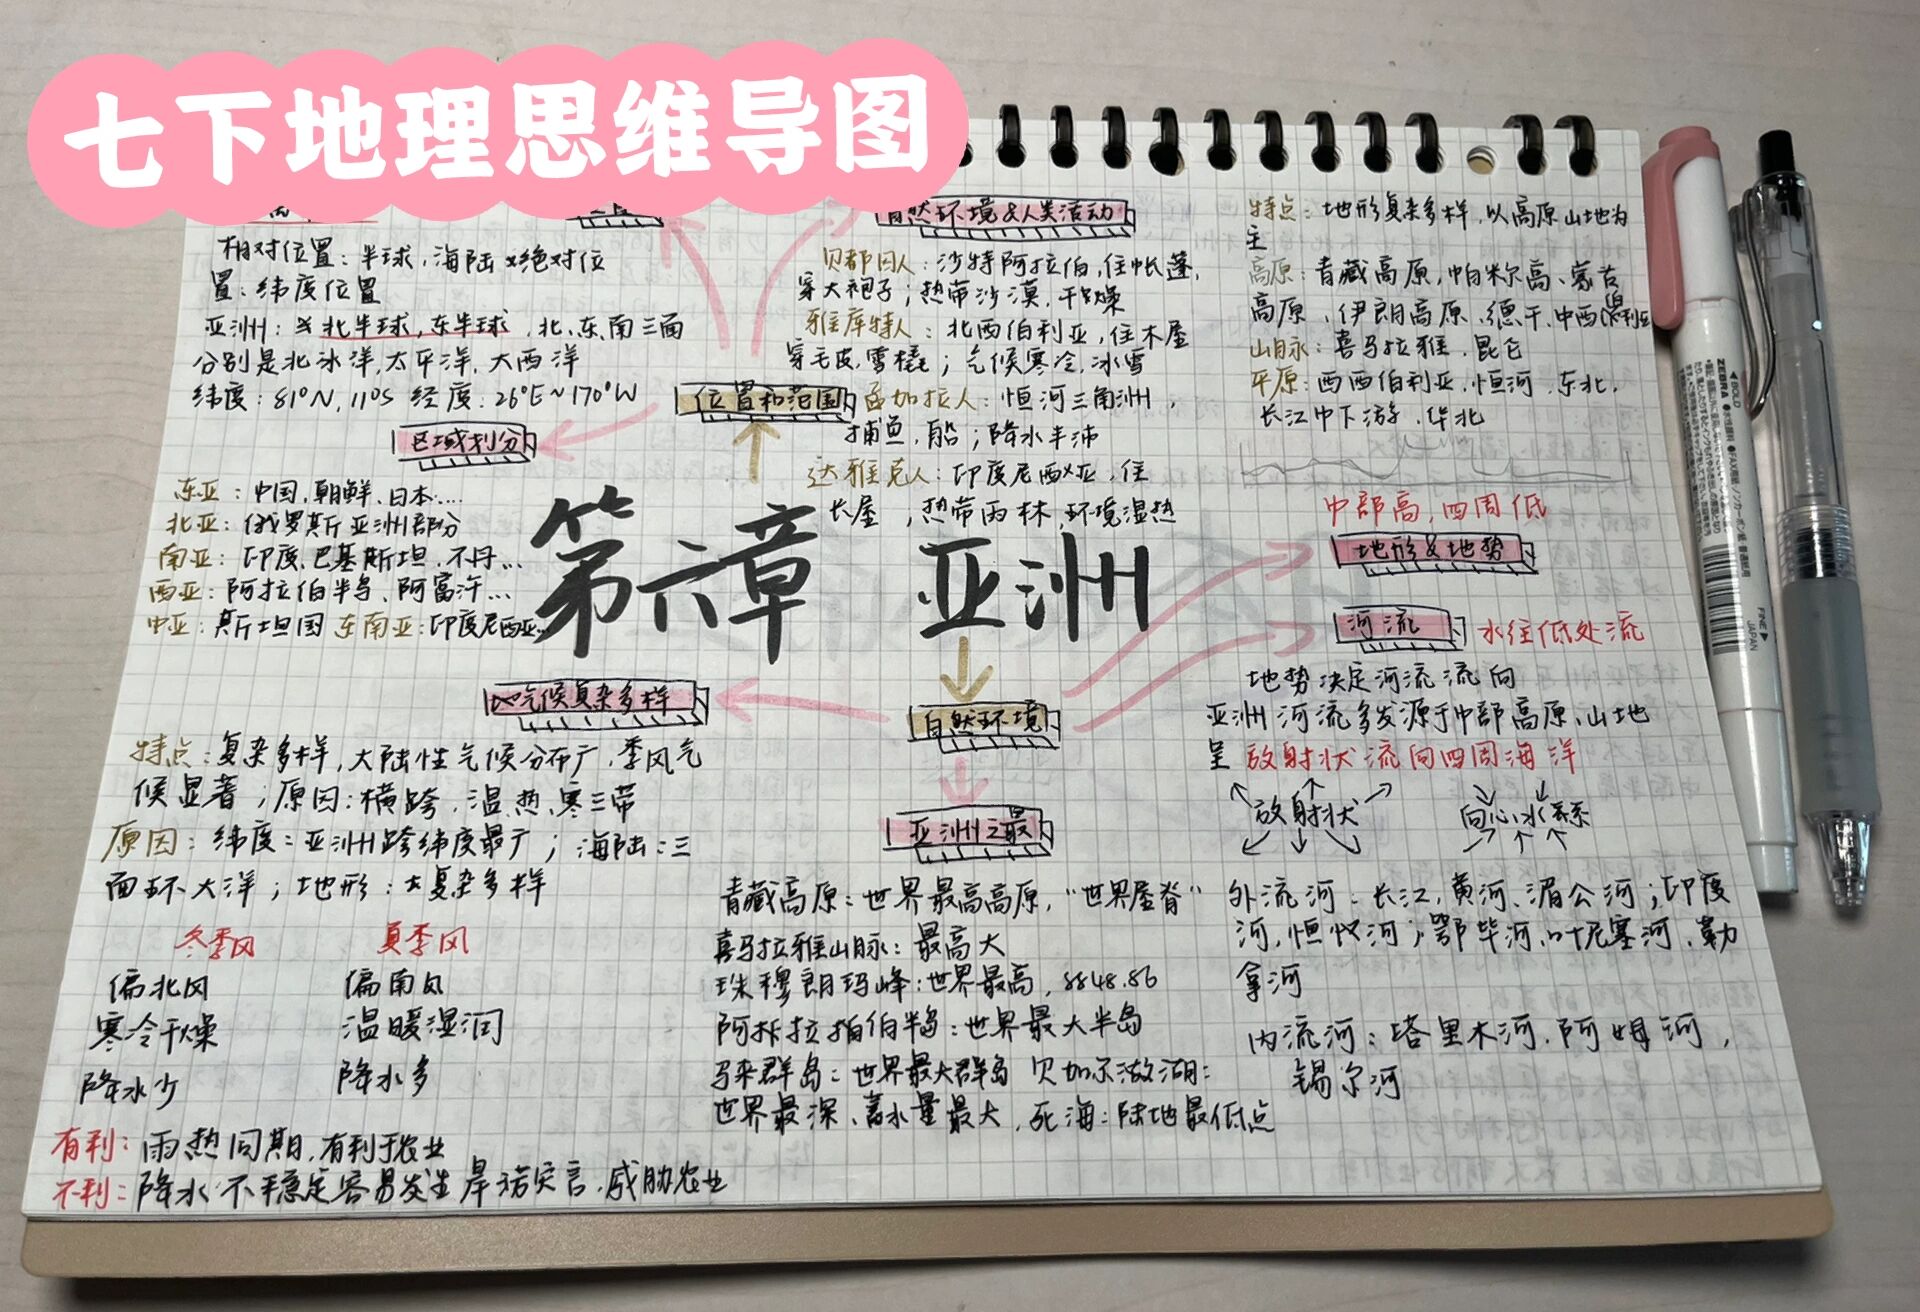 七下地理思维导图
自然环境&人类活动
相对位置：半球，海陆 绝对位
置：纬度位置
亚洲：北半球，东半球，北、东、南三面
分别是北冰洋，太平洋，大西洋
纬度：81°N, 11°S 经度：26°E~170°W
区域划分
东亚：中国，朝鲜、日本....
北亚：俄罗斯亚洲部分
南亚：印度、巴基斯坦、不丹...
西亚：阿拉伯半岛、阿富汗...
中亚：斯坦国 东南亚：印度尼西亚...
位置和范围
贝都因人：沙特阿拉伯，住帐蓬，
穿大袍子；热带沙漠，干燥
雅库特人：北西伯利亚，住木屋
穿毛皮，雪橇；气候寒冷，冰雪
孟加拉人：恒河三角洲，
捕鱼，船；降水丰沛
达雅克人：印度尼西亚，住
长屋，热带雨林，环境湿热
特点：地形复杂多样，以高原山地为
主
高原：青藏高原，帕米尔高、蒙古
高原、伊朗高原、德干、中西伯利亚
山脉：喜马拉雅、昆仑
平原：西西伯利亚，恒河、东北，
长江中下游、华北
中部高，四周低
地形&地势
第六章 亚洲
河流 水往低处流
地势决定河流流向
亚洲河流多发源于中部高原、山地
呈放射状流向四周海洋
放射状 向心水系
外流河：长江，黄河、湄公河；印度
河，恒河；鄂毕河，叶尼塞河、勒
拿河
内流河：塔里木河，阿姆河，
锡尔河
气候复杂多样
特点：复杂多样，大陆性气候分布广，季风气
候显著；原因：横跨，温、热、寒三带
原因：纬度：亚洲跨纬度最广；海陆：三
面环大洋；地形：复杂多样
冬季风 夏季风
偏北风 偏南风
寒冷干燥 温暖湿润
降水少 降水多
有利：雨热同期，有利于农业
不利：降水不稳定容易发生旱，威胁农业
自然环境
亚洲之最
青藏高原：世界最高高原，“世界屋脊”
喜马拉雅山脉：最高大
珠穆朗玛峰：世界最高，8848.86
阿拉伯半岛：世界最大半岛
马来群岛：世界最大群岛 贝加尔湖：
世界最深、蓄水量最大，死海：陆地最低点
ZEBRA
BOLD
FINE
JAPAN